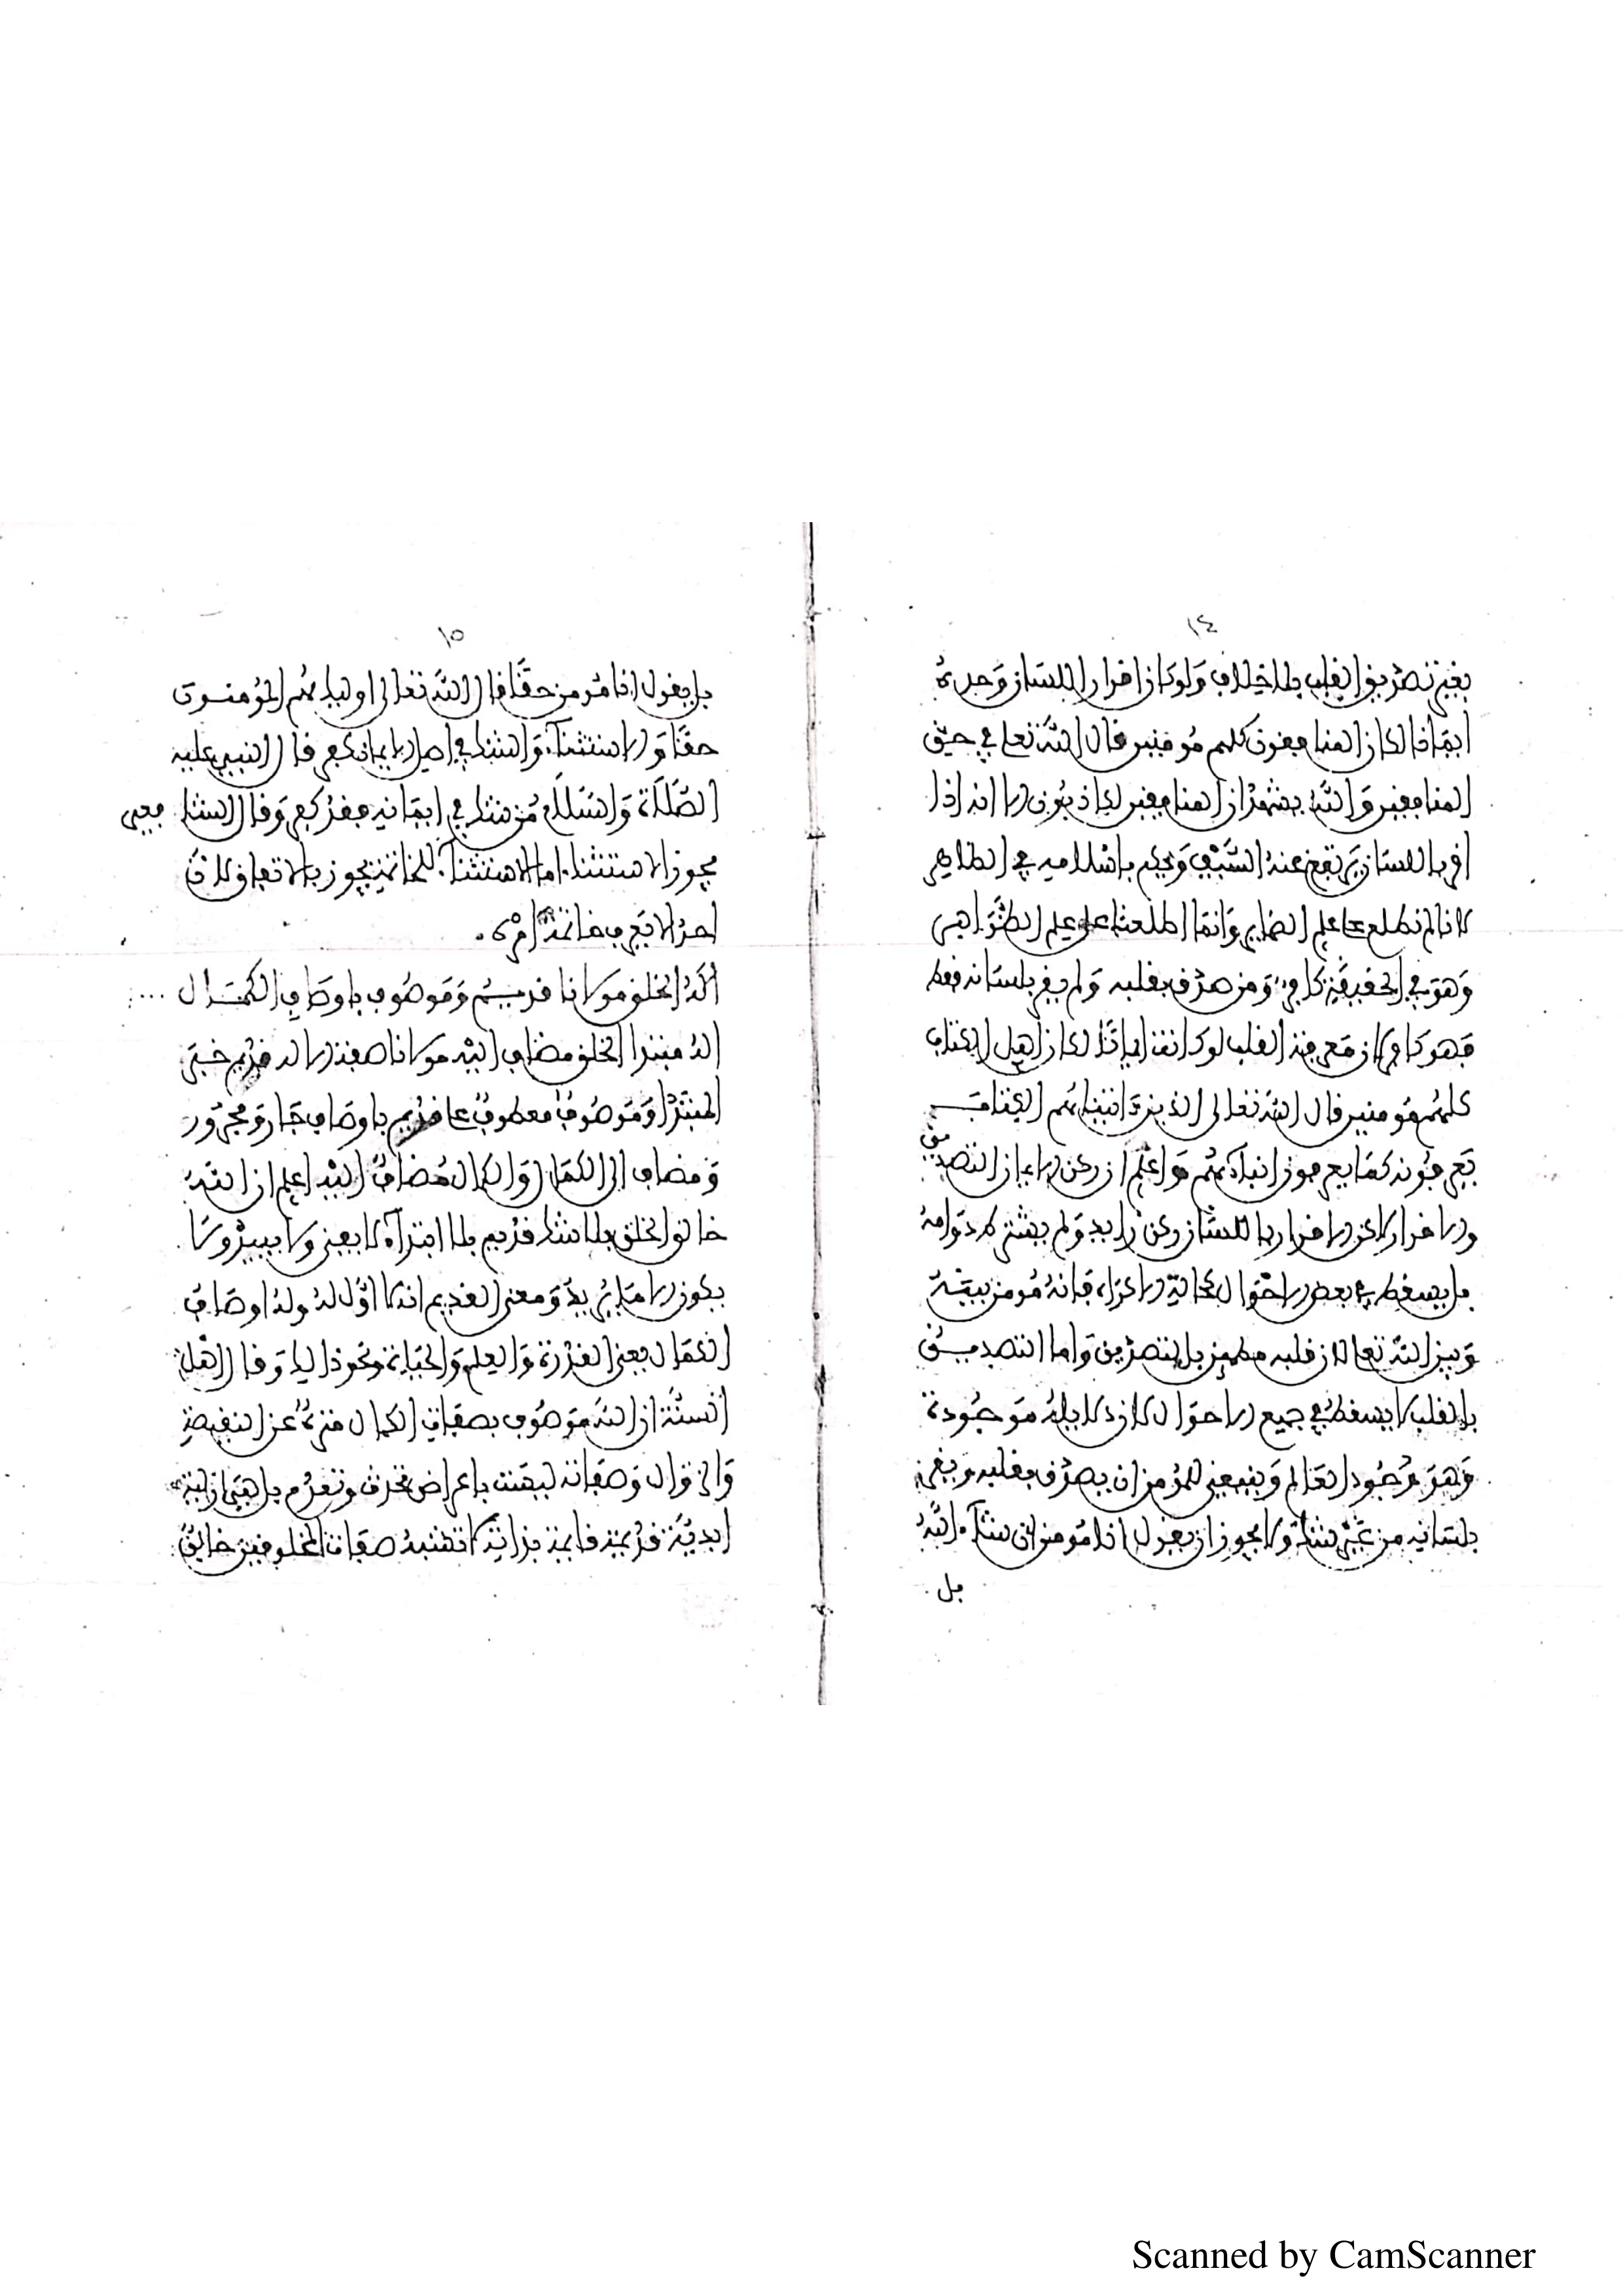 ١٤
بغير تصديق القلب بلا خلاف ولو كان اقرار اللسان وحده
ايمانا لكان المنافقون كلهم مؤمنين قال الله تعالى في حق
المنافقين والله يشهد ان المنافقين لكاذبون الا انه اذا
اقر باللسان يرتفع عنه السيف ويحكم باسلامه في الظاهر
لانا لم نطلع على علم الضماير وانما اطلعنا على علم الظواهر
وهو في الحقيقة كافر ومن صدق بقلبه ولم يقر بلسانه فقط
فهو كافر لان معرفة القلب لو كانت ايمانا لكان اهل الكتاب
كلهم مؤمنين قال الله تعالى الذين اتيناهم الكتاب
يعرفونه كما يعرفون ابناءهم واعلم ان ركن الايمان التصديق
والاقرار لاكن الاقرار باللسان ركن زايد ولم يشترط دوامه
بل يسقط في بعض الاحوال كحالة الاكراه فانه مؤمن بينه
وبين الله تعالى لان قلبه مطمين بالتصديق واما التصديق
بالقلب لا يسقط في جميع الاحوال لان دلايله موجودة
وهو وجود العالم وينبغي للمؤمن ان يصدق بقلبه ويقر
بلسانه من غير شك ولا يجوز ان يقول انا مؤمن ان شاء الله
بل
١٥
بل يقول انا مؤمن حقا قال الله تعالى اوليك هم المؤمنون
حقا ولا استثناء والشك في اصل الايمان كفر قال النبي عليه
الصلاة والسلام من شك في ايمانه فقد كفر وقال الشافعي
يجوز الاستثناء اما الاستثناء للخاتمة يجوز بالاتفاق لان
احدا لا يعرف خاتمة امره
اله الخلق مولانا قديم وموصوف باوصاف الكمال ...
اله مبتدا الخلق مضاف اليه مولانا صفة الاله قديم خبر
المبتدا وموصوف معطوف على قديم باوصاف جار ومجرور
ومضاف الى الكمال والكمال مضاف اليه اعلم ان الله
خالق الخلق بلا شك قديم بلا ابتداء لا يفنى ولا يبيد ولا
يكون الا ما يريد ومعنى القديم انه لا اول له وله اوصاف
الكمال يعني القدرة والعلم والحياة ونحو ذلك وقال اهل
السنة ان الله موصوف بصفات الكمال منزه عن النقيصة
والزوال وصفاته ليست باعراض تحدث وتعدم بل هي ازلية
ابدية قديمة قايمة بذاته لا تشبه صفات المخلوقين خالق